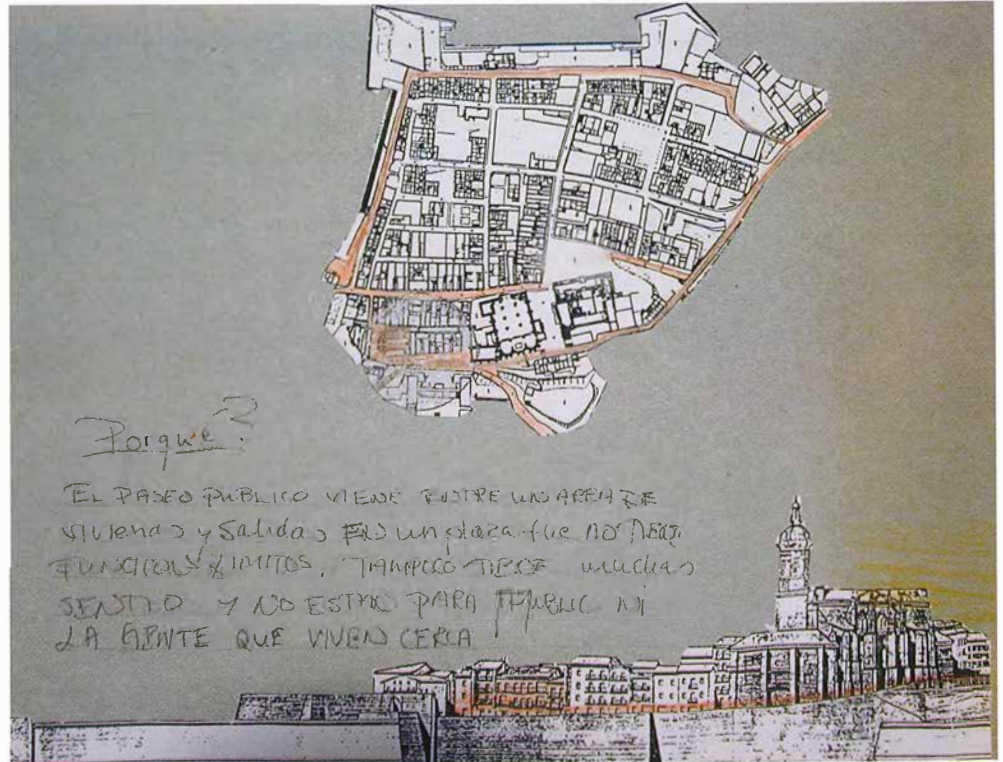 Porque?
EL PASEO PUBLICO VIENE ENTRE UN AREA DE
viviendas y salida un plaza que no
FUNCION Y LIMITOS. TAMPOCO TIENE muchas
SENTIDO Y NO ESTAN PARA PUBLIC NI
LA GENTE QUE VIVEN CERCA